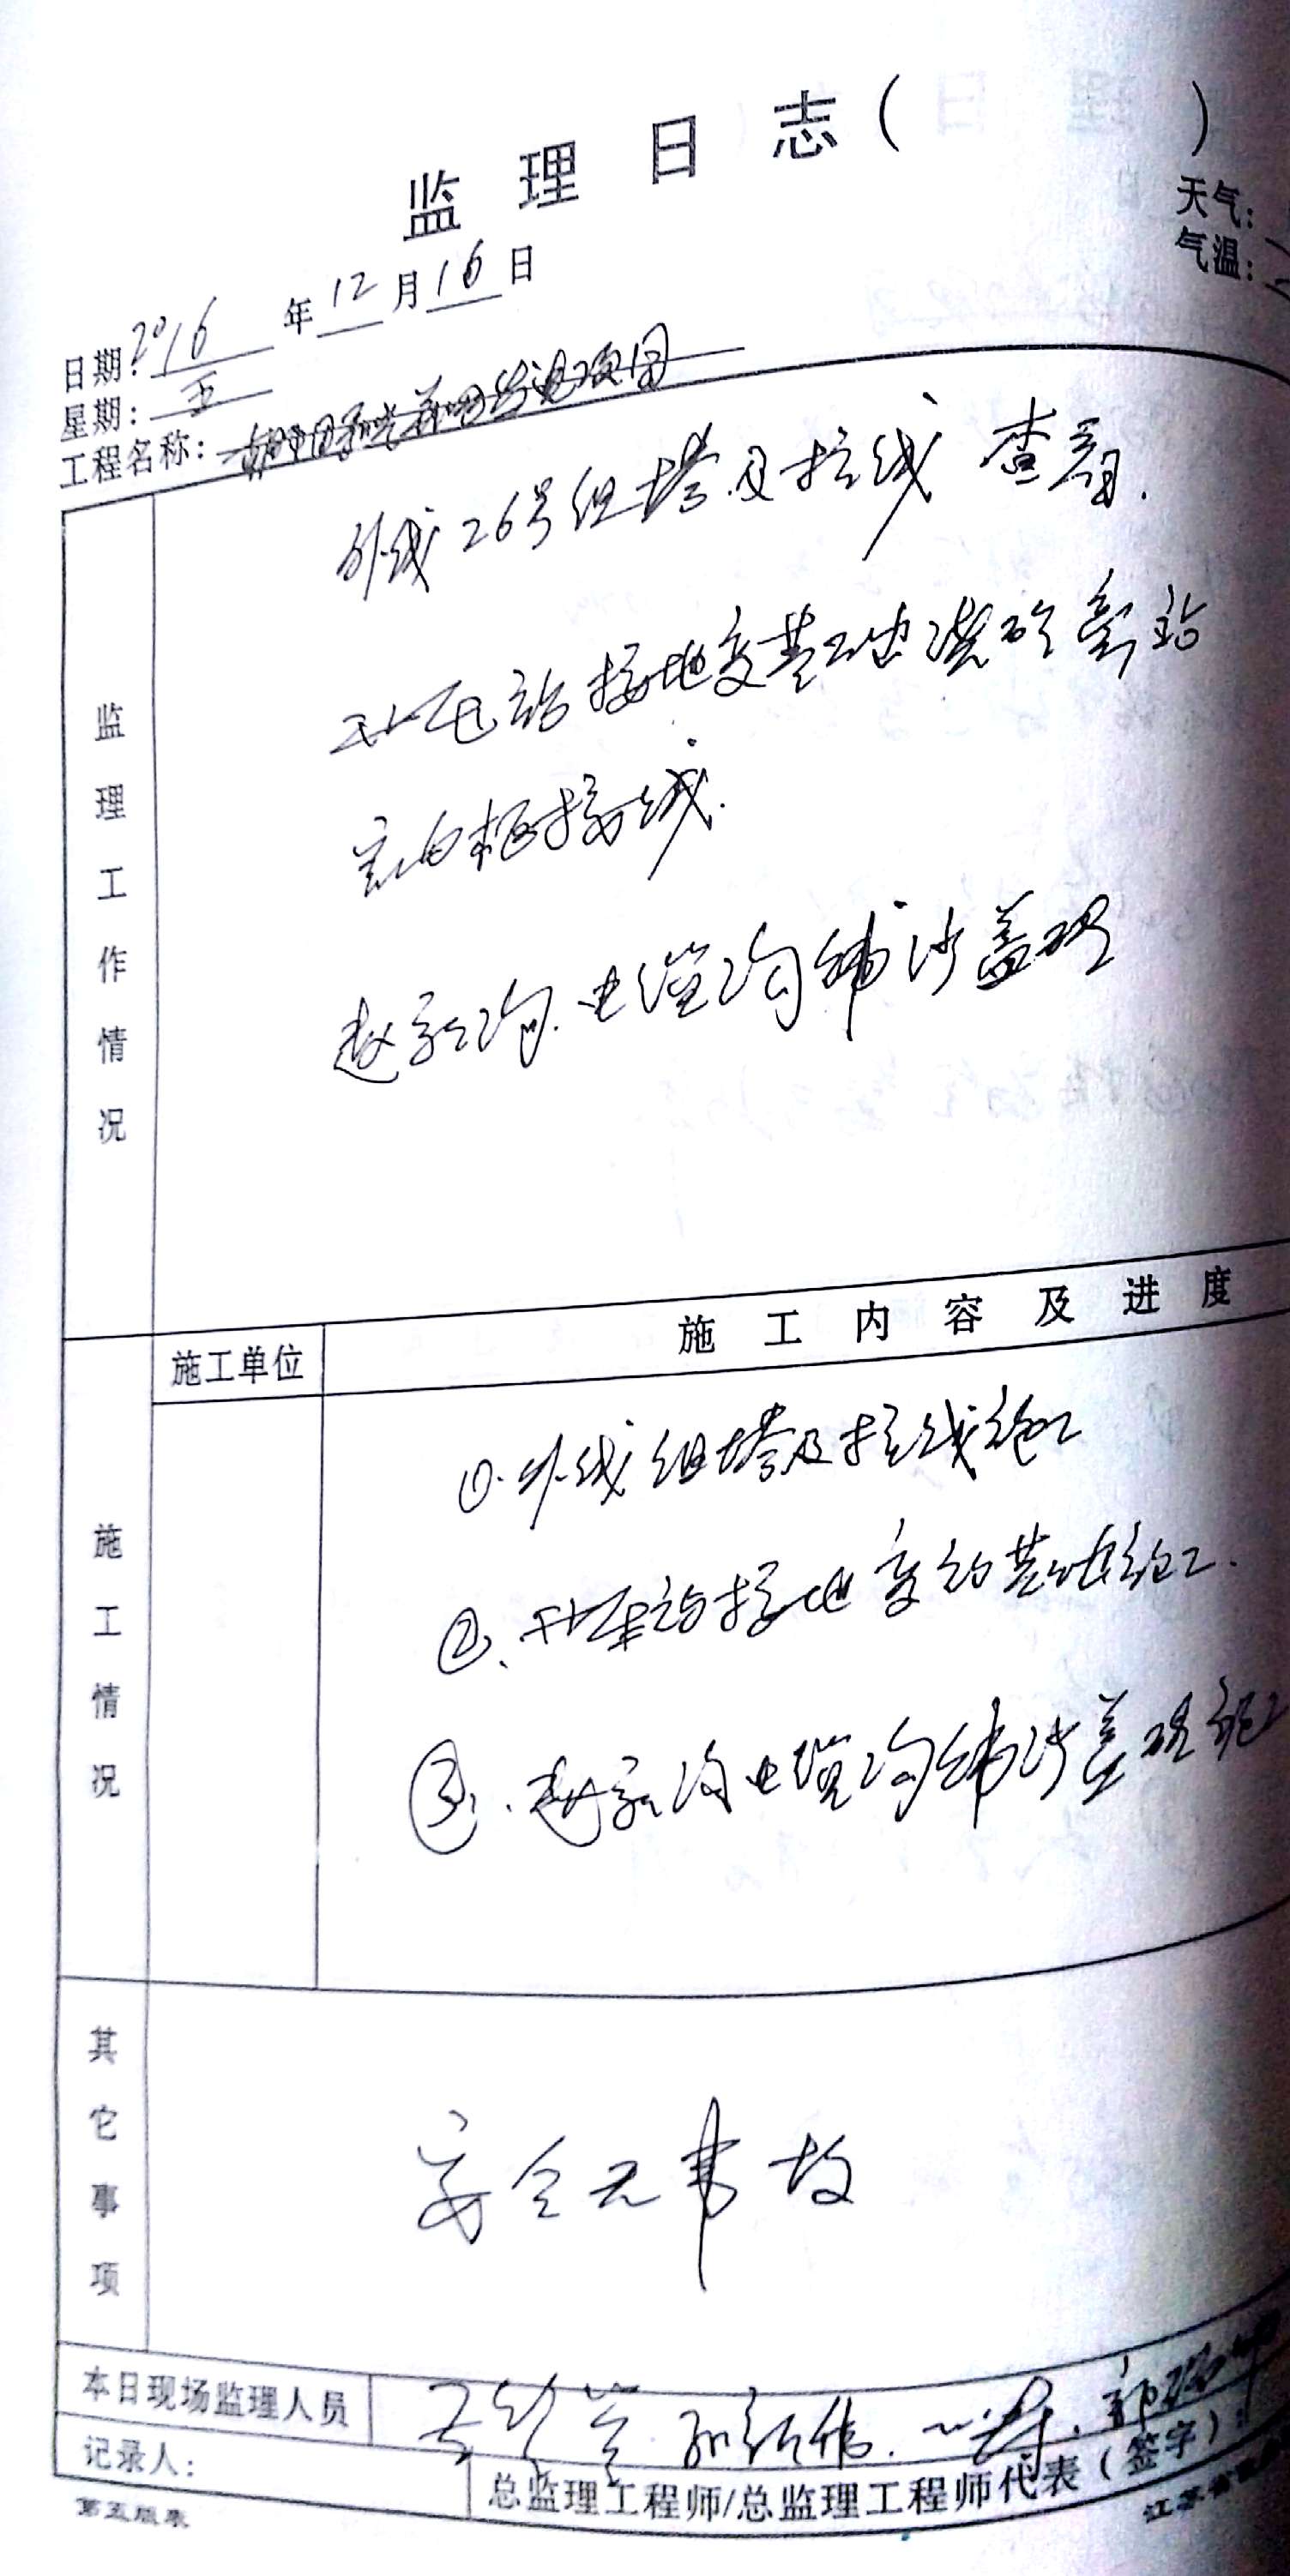 监理日志( )
天气:
气温:
日期:2016年12月16日
星期:五
工程名称:
监理工作情况
外线26号组塔及拉线查看.
升压站接地变基础浇砼
柜接线.
赵家沟.电缆沟铺沙盖砖
施工情况
施工单位
施工内容及进度
①.外线组塔及拉线施工
②、升压站接地变的基础施工.
③.赵家沟电缆沟铺沙盖砖施工
其它事项
安全无事故
本日现场监理人员
记录人:
总监理工程师/总监理工程师代表(签字):
第五版表
江苏省